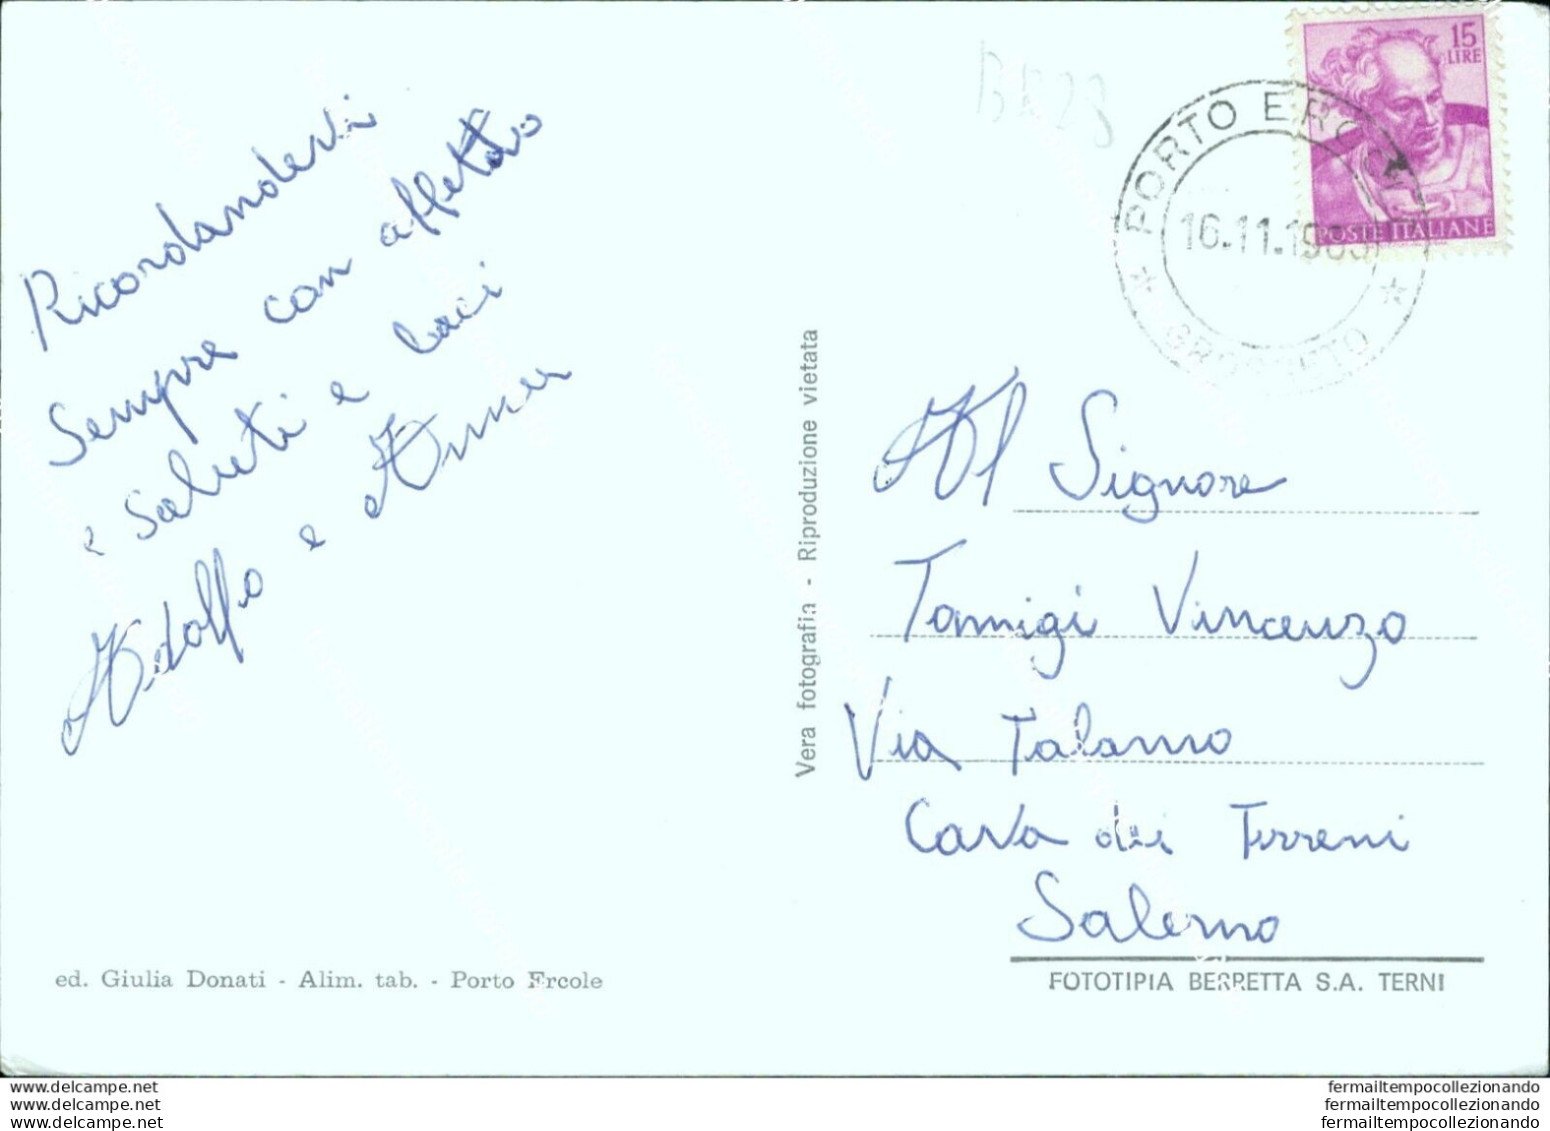 Ricordandovi
Sempre con affetto
e saluti e baci
Adolfo e Anna
ed. Giulia Donati - Alim. tab. - Porto Ercole
Vera fotografia - Riproduzione vietata
15
LIRE
POSTE ITALIANE
PORTO ERCOLE
16.11.1963
GROSSETO
Al Signore
Tamigi Vincenzo
Via Talamo
Cava dei Tirreni
Salerno
FOTOTIPIA BERRETTA S.A. TERNI
www.delcampe.net
www.delcampe.net
www.delcampe.net
fermailtempocollezionando
fermailtempocollezionando
fermailtempocollezionando